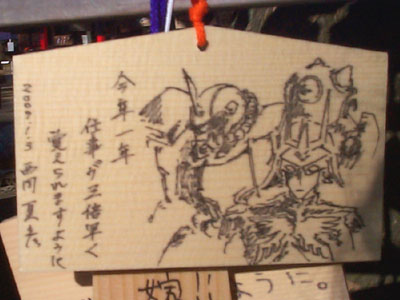 今年一年
仕事が三倍早く
覚えられますように
2009.1.3 西川夏衣
嫁
ように。